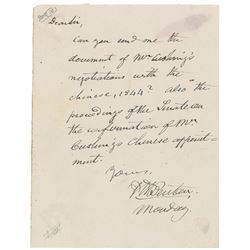 Dear Sir,
Can you send me the
document of Mr Cushing's
negotiations with the
Chinese, 1844? also the
proceedings of the Senate on
the confirmation of Mr
Cushing's Chinese appoint-
ment.
Yours,
Monday.